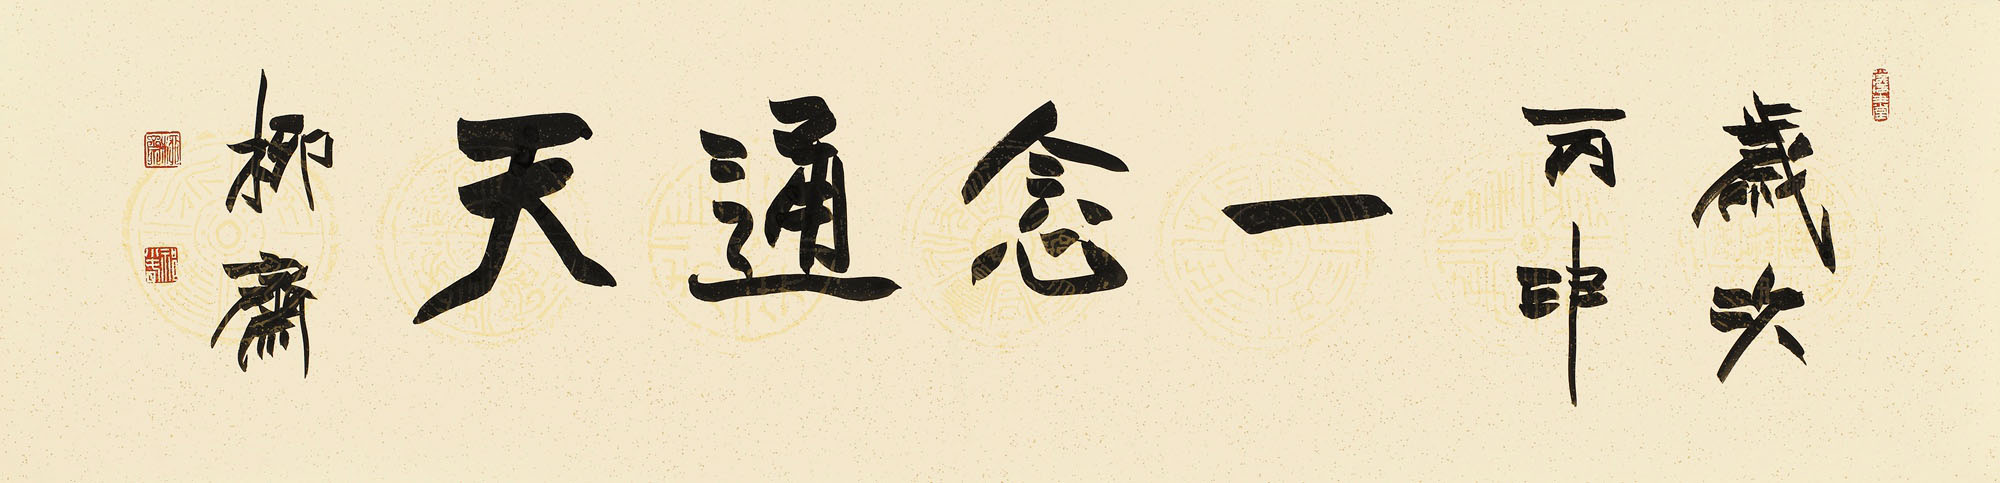 歲次
丙申
一念通天
柳齋